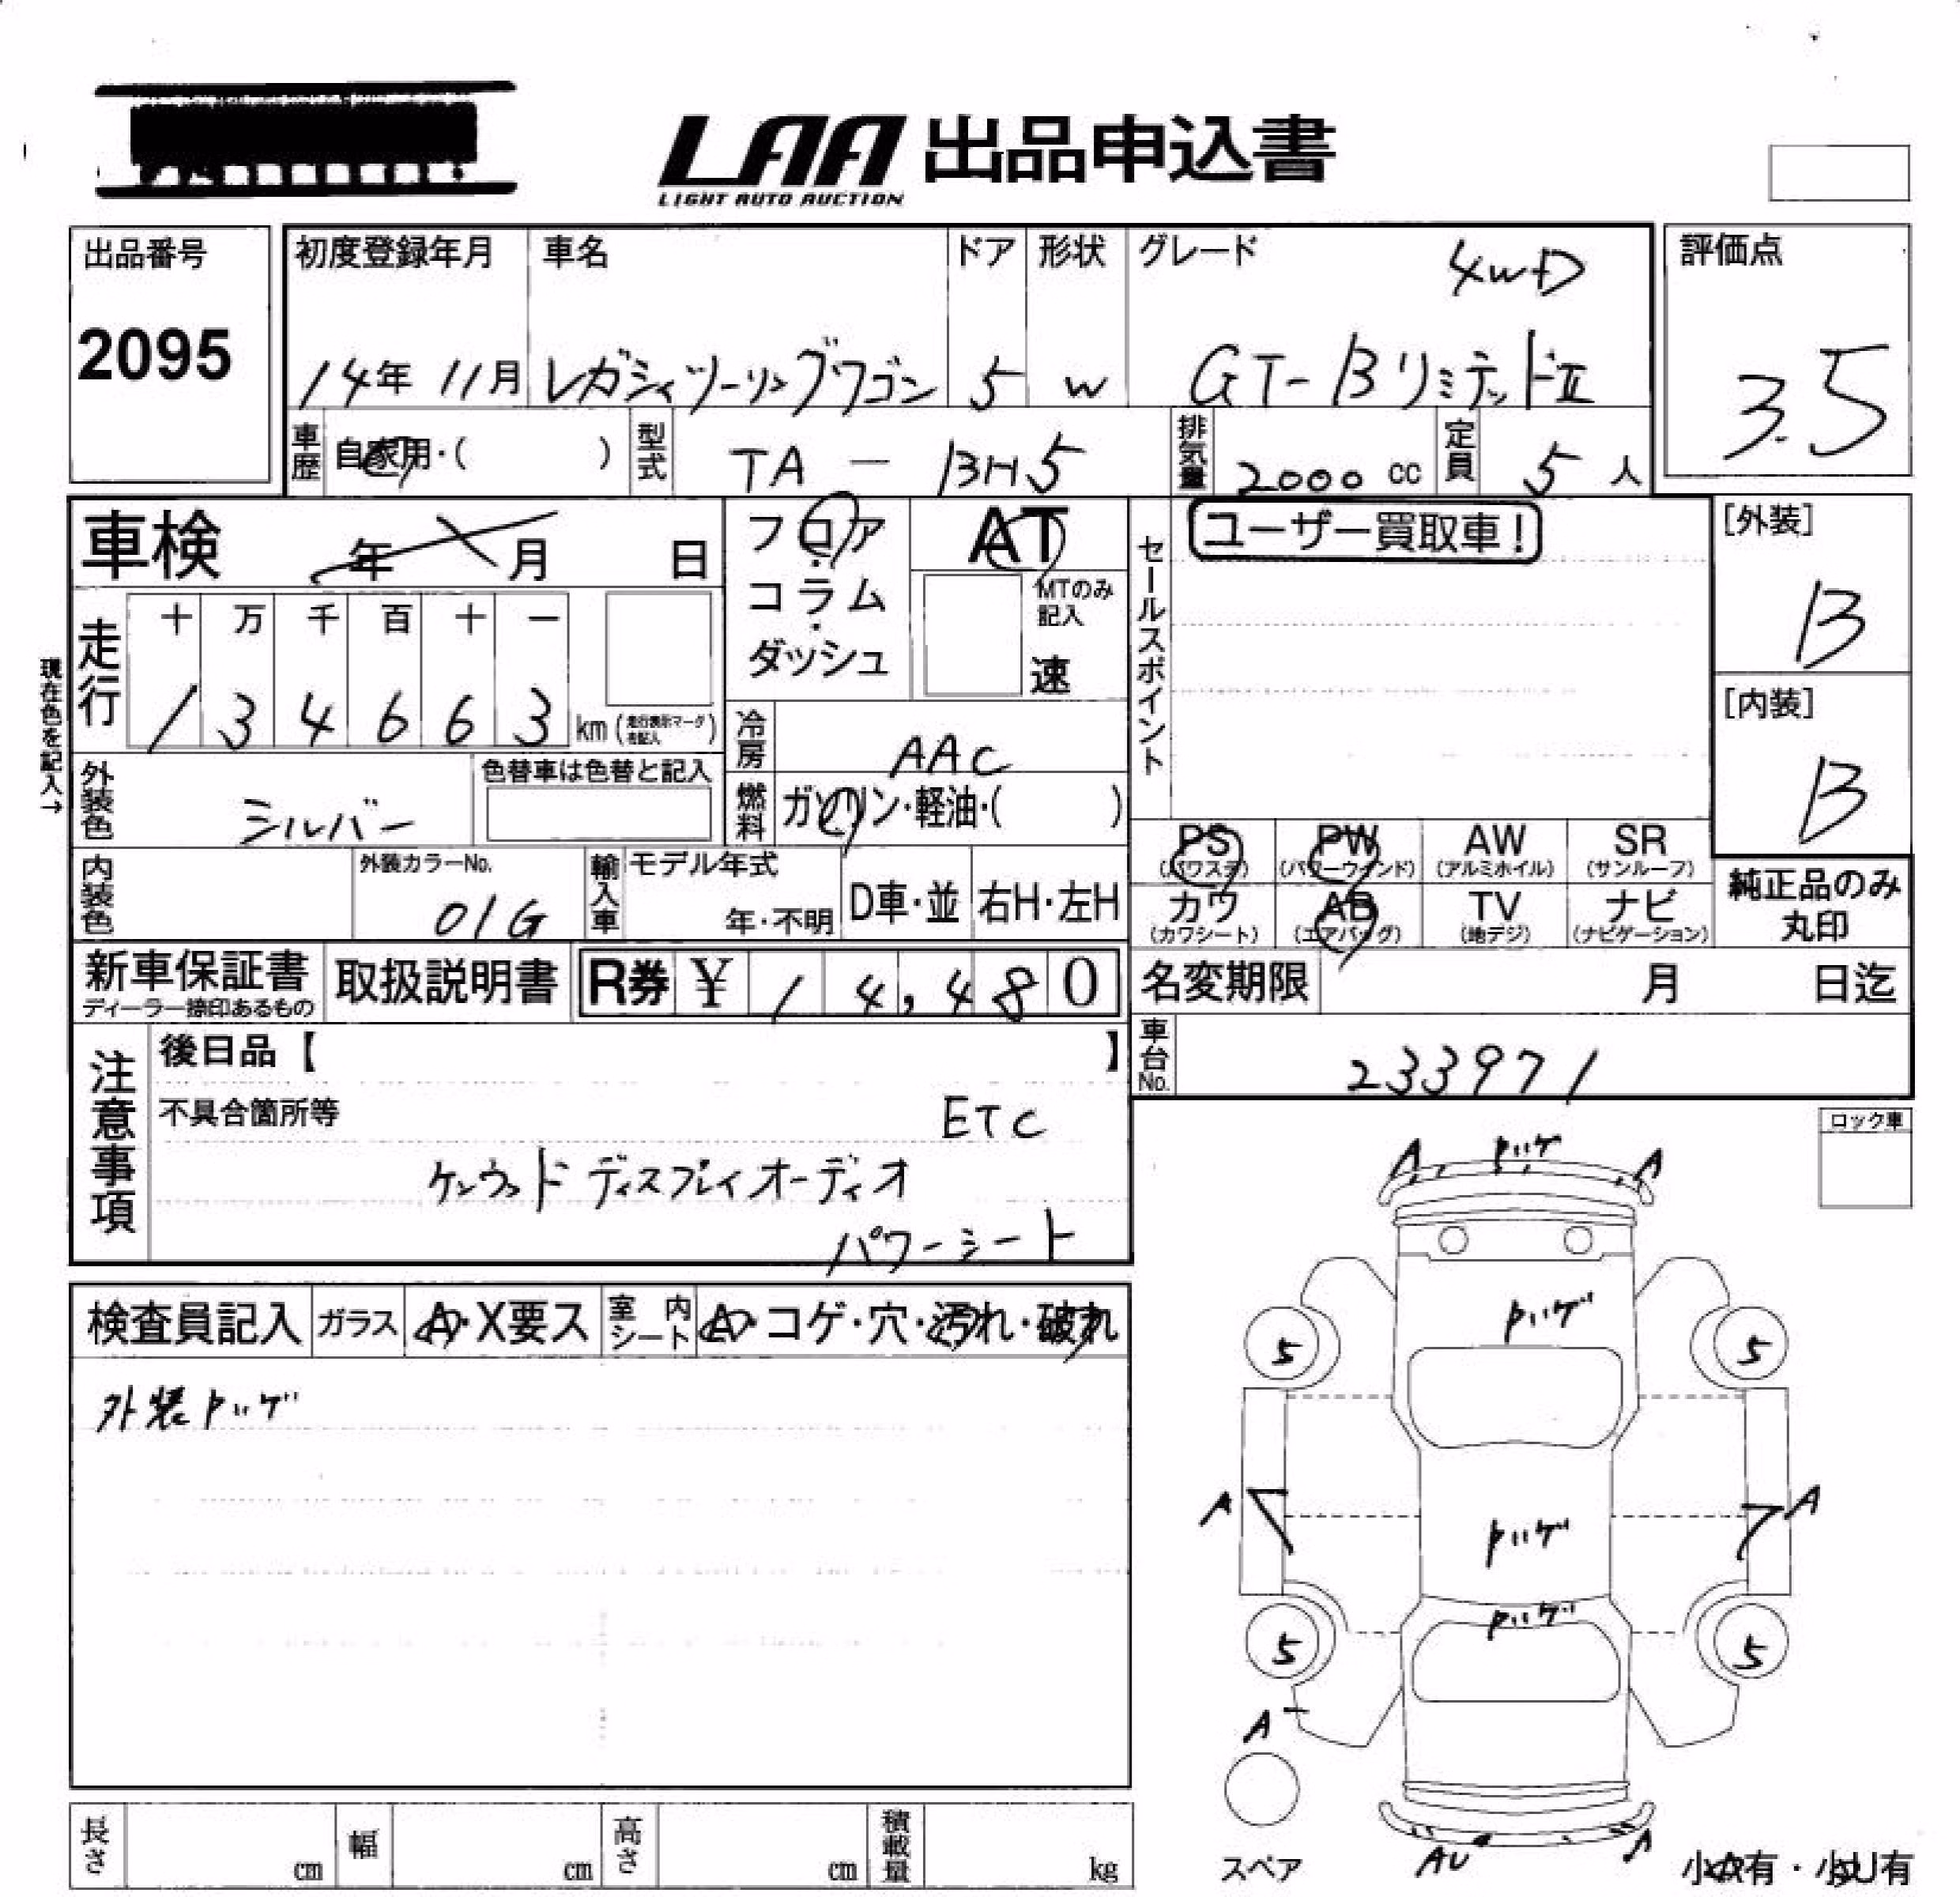 LAA 出品申込書
LIGHT AUTO AUCTION
出品番号
2095
初度登録年月
14年 11月
車名
レガシィツーリングワゴン
ドア
5
形状
W
グレード
4WD
GT-Bリミテッド II
評価点
3.5
車歴
自家用・( )
型式
TA-BH5
排気量
2000 cc
定員
5 人
車検
年 月 日
フロア・
コラム・
ダッシュ
AT
MTのみ
記入
速
セールスポイント
ユーザー買取車!
[外装]
B
[内装]
B
現在色を記入→
走行
十 万 千 百 十 一
1 3 4 6 6 3 km (走行表示マーク右記入)
冷房
AAC
外装色
シルバー
色替車は色替と記入
燃料
ガソリン・軽油・( )
PS (パワステ) PW (パワーウインド) AW (アルミホイル) SR (サンルーフ)
カワ (カワシート) AB (エアバッグ) TV (地デジ) ナビ (ナビゲーション)
純正品のみ
丸印
内装色
外装カラーNo.
01G
輸入車
モデル年式
年・不明
D車・並
右H・左H
新車保証書
ディーラー捺印あるもの
取扱説明書
R券 ¥ 14,480
名変期限 月 日迄
車台No.
233971
注意事項
後日品【 】
不具合箇所等
ETC
ケンウッドディスプレイオーディオ
パワーシート
ロック車
検査員記入
ガラス
A・X要ス
室内
シート
A・コゲ・穴・汚れ・破れ
外装トゲ
A トゲ A
トゲ
5 5
A トゲ A
トゲ
5 5
A
スペア
AU A
小A有・小U有
長さ cm
幅 cm
高さ cm
積載量 kg